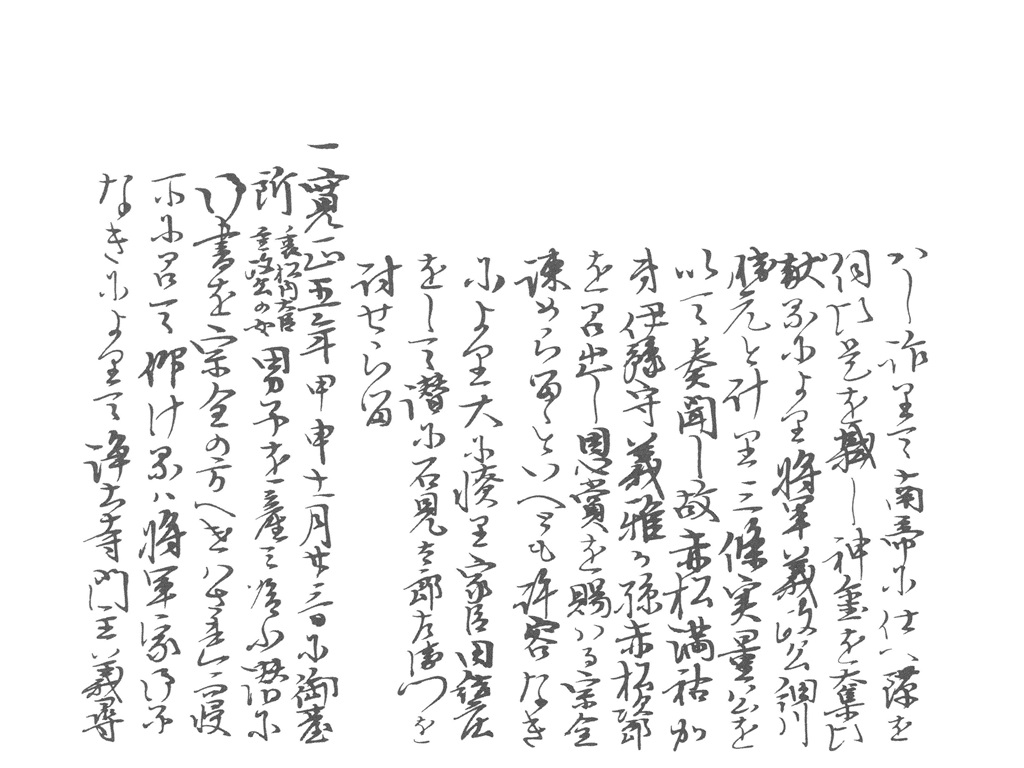 かし詐りて南帝に仕へ謀を
伺ひ是を し神璽を奪ひ
献るにより将軍義政公細川
勝元と計り三條実量公を
以て奏聞し故赤松満祐か
弟伊豫守義雅か孫赤松次郎
を召出し恩賞を賜はる宗全
諫めらるといへとも許容なき
により大に憤り家臣田結庄
をして潜に石見太郎左衛門を
討せらる
一寛正五年甲申十一月廿三日に御臺
所裏松内大臣
重政公の女男子を産み給ふ密に
書を宗全の方へ
に召て仰けるは将軍家御子
なきによりて浄土寺門主義尋